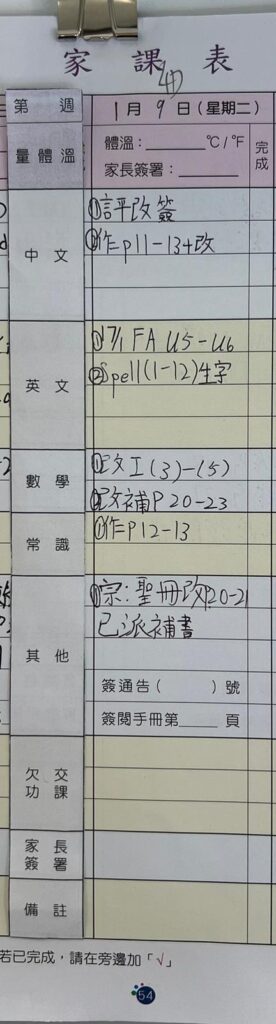 家課表
第 週
1月9日(星期二)
完成
量體溫
體溫:______℃/℉
家長簽署:______
中文
①評改簽
②作p11-13+改
英文
①17/1 FA U5-U6
②Spell(1-12)生字
數學
①改工(3)-(5)
②改補P20-23
常識
①作P12-13
其他
①宗:聖冊改P20-21
已派補書
簽通告( )號
簽閱手冊第____頁
欠交功課
家長簽署
備註
若已完成,請在旁邊加「√」
54